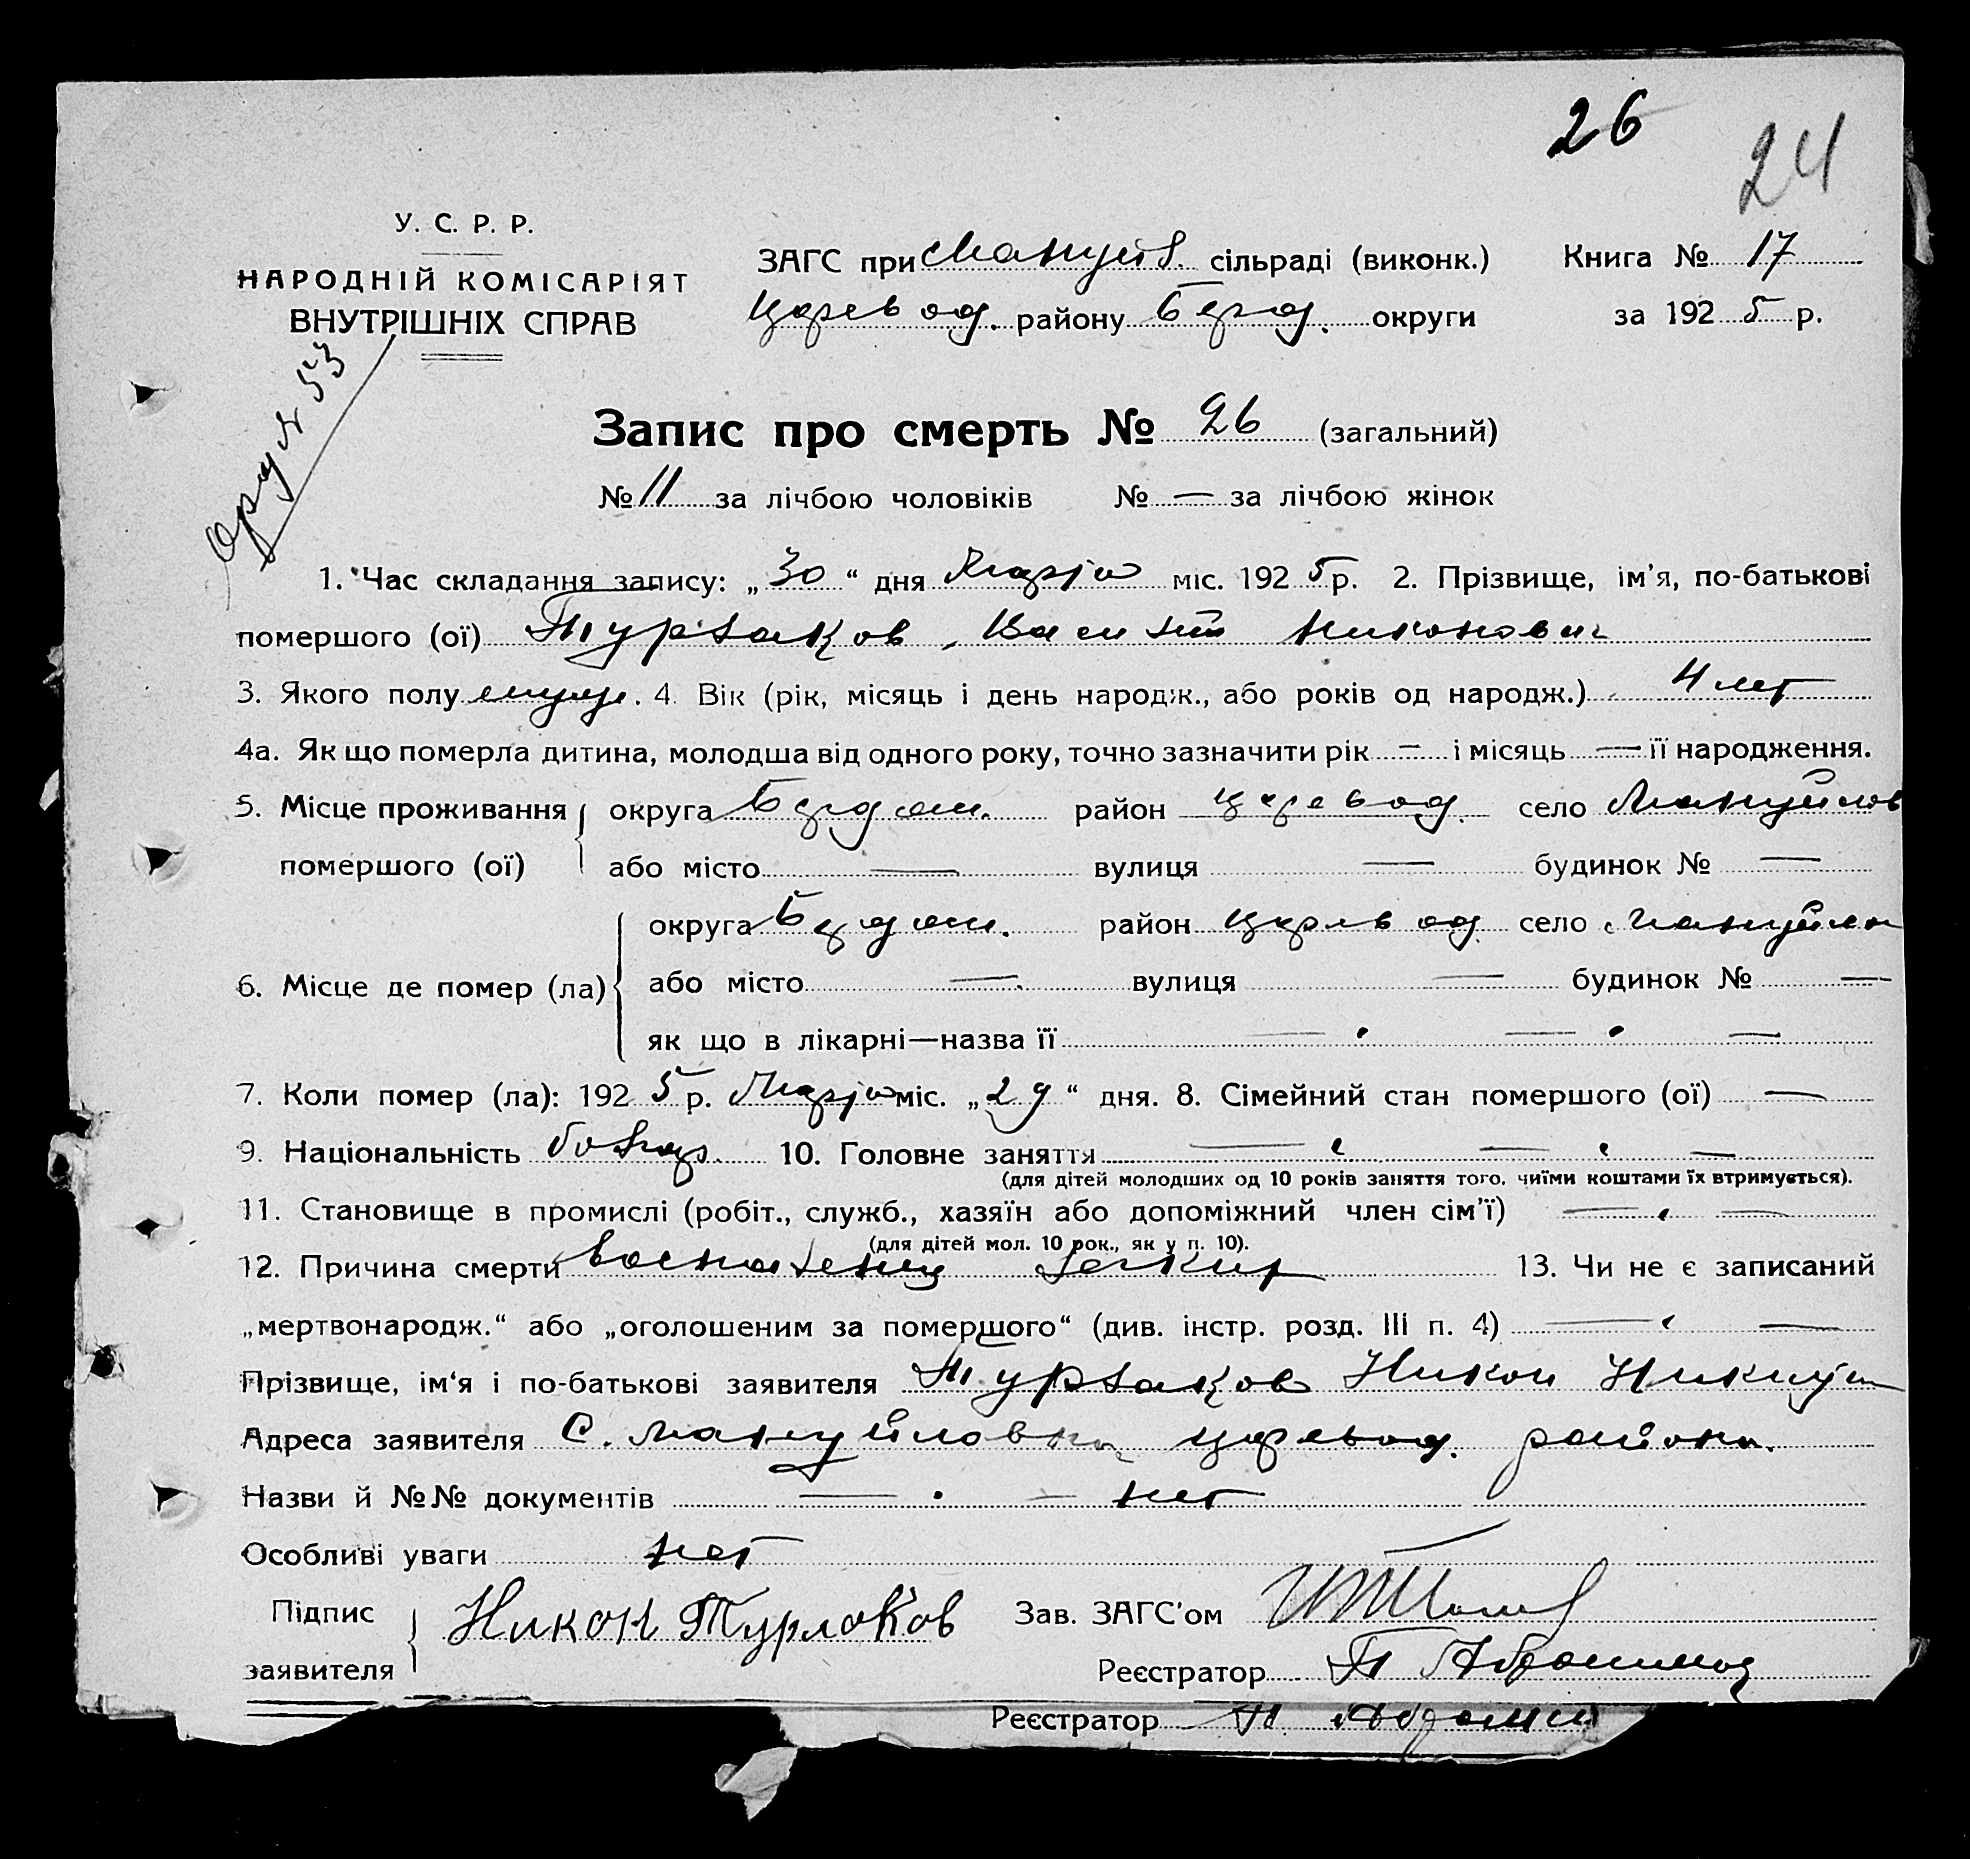 26
24
У. С. Р. Р.
НАРОДНІЙ КОМІСАРІЯТ
ВНУТРІШНІХ СПРАВ
ЗАГС при Мануйл. сільраді (виконк.) Книга № 17
Царевод. району Берд. округи за 1925 р.
53
Запис про смерть № 26 (загальний)
№ 11 за лічбою чоловіків № — за лічбою жінок
1. Час складання запису: „30“ дня Марта міс. 1925 р. 2. Прізвище, ім’я, по-батькові
помершого (ої) Турлаков, Василий Никонович
3. Якого полу мужс. 4. Вік (рік, місяць і день народж., або років од народж.) 4 лет
4а. Як що померла дитина, молодша від одного року, точно зазначити рік — і місяць — її народження.
5. Місце проживання округа Бердян. район Царевод. село Мануйлов
помершого (ої) або місто — вулиця — будинок № —
округа Бердян. район Царевод. село Мануйлов
6. Місце де помер (ла) або місто — вулиця — будинок № —
як що в лікарні—назва її — „ — „ —
7. Коли помер (ла): 1925 р. Марта міс. „29“ дня. 8. Сімейний стан помершого (ої) —
9. Національність болгар. 10. Головне заняття — „ — „ —
(для дітей молодших од 10 років заняття того, чиїми коштами їх втримується).
11. Становище в промислі (робіт., служб., хазяїн або допоміжний член сім’ї) — „ —
(для дітей мол. 10 рок., як у п. 10).
12. Причина смерти воспаление легких 13. Чи не є записаний
„мертвонародж.“ або „оголошеним за помершого“ (див. інстр. розд. III п. 4) — „ —
Прізвище, ім‘я і по-батькові заявителя Турлаков Никон
Адреса заявителя с. Мануйловка Царевод. района.
Назви й №№ документів — „ — нет
Особливі уваги нет
Підпис Никон Турлаков Зав. ЗАГС’ом
заявителя Реєстратор П Абрамов
Реєстратор П.